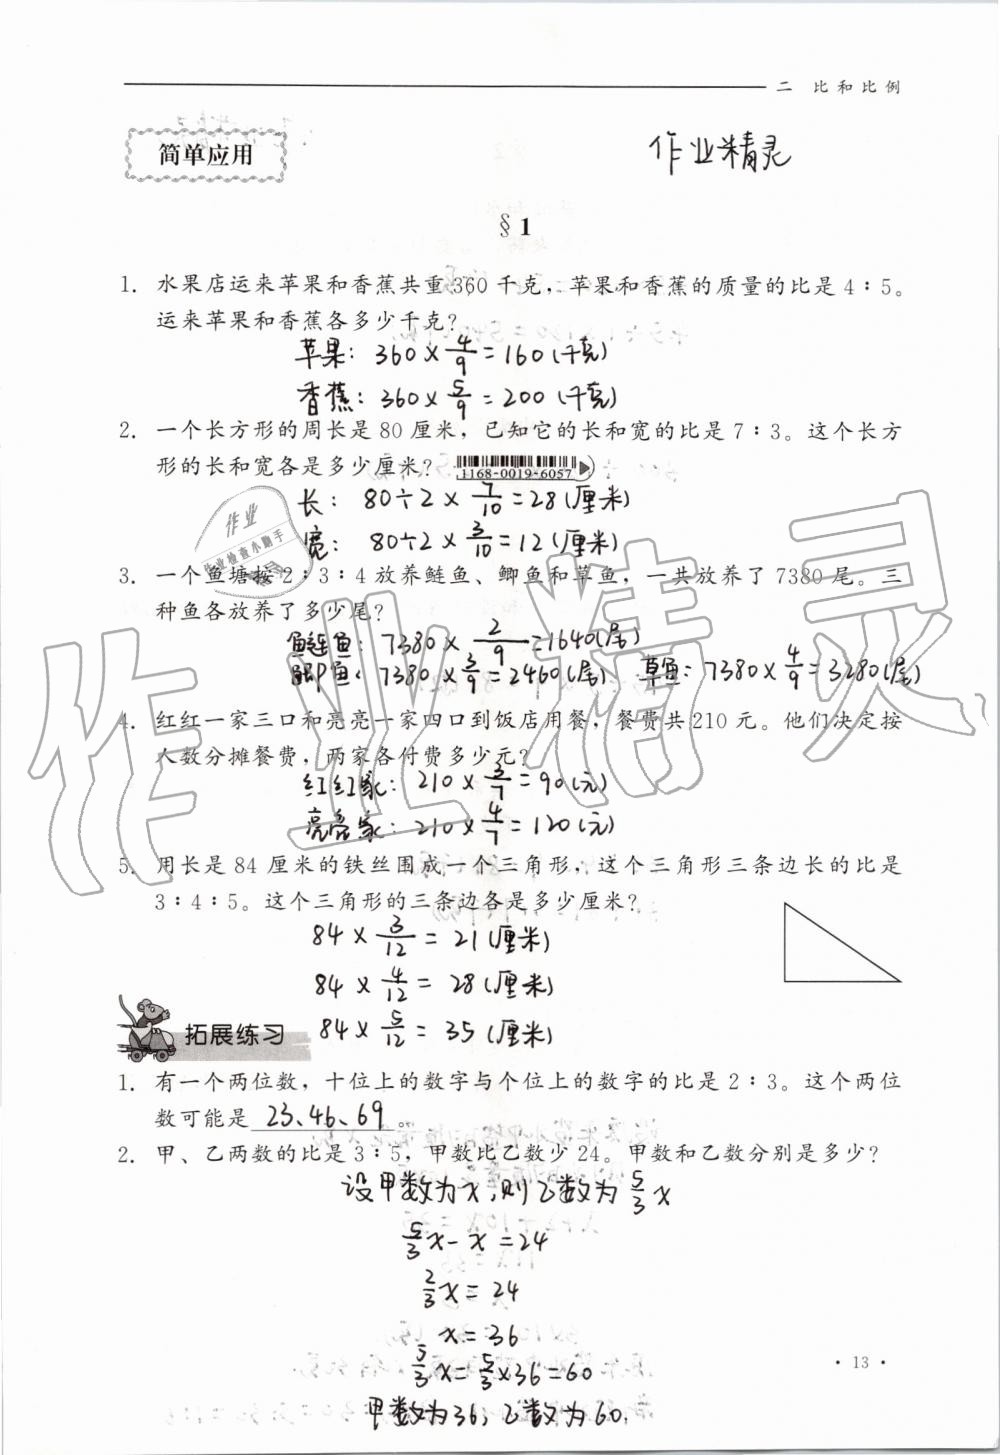 二 比和比例
简单应用
作业精灵
§1
1. 水果店运来苹果和香蕉共重360千克，苹果和香蕉的质量的比是4∶5。
运来苹果和香蕉各多少千克？
苹果：360×4/9=160(千克)
香蕉：360×5/9=200(千克)
2. 一个长方形的周长是80厘米，已知它的长和宽的比是7∶3。这个长方
形的长和宽各是多少厘米？
1168-0019-6057
长：80÷2×7/10=28(厘米)
宽：80÷2×3/10=12(厘米)
作业
作业检查小助手
3. 一个鱼塘按2∶3∶4放养鲢鱼、鲫鱼和草鱼，一共放养了7380尾。三
种鱼各放养了多少尾？
鲢鱼：7380×2/9=1640(尾)
鲫鱼：7380×3/9=2460(尾) 草鱼：7380×4/9=3280(尾)
4. 红红一家三口和亮亮一家四口到饭店用餐，餐费共210元。他们决定按
人数分摊餐费，两家各付费多少元？
红红家：210×3/7=90(元)
亮亮家：210×4/7=120(元)
5. 用长是84厘米的铁丝围成一个三角形，这个三角形三条边长的比是
3∶4∶5。这个三角形的三条边各是多少厘米？
84×3/12=21(厘米)
84×4/12=28(厘米)
84×5/12=35(厘米)
拓展练习
1. 有一个两位数，十位上的数字与个位上的数字的比是2∶3。这个两位
数可能是 23、46、69 。
2. 甲、乙两数的比是3∶5，甲数比乙数少24。甲数和乙数分别是多少？
设甲数为x，则乙数为5/3x
5/3x-x=24
2/3x=24
x=36
5/3x=5/3×36=60
甲数为36，乙数为60.
作业精灵
·13·